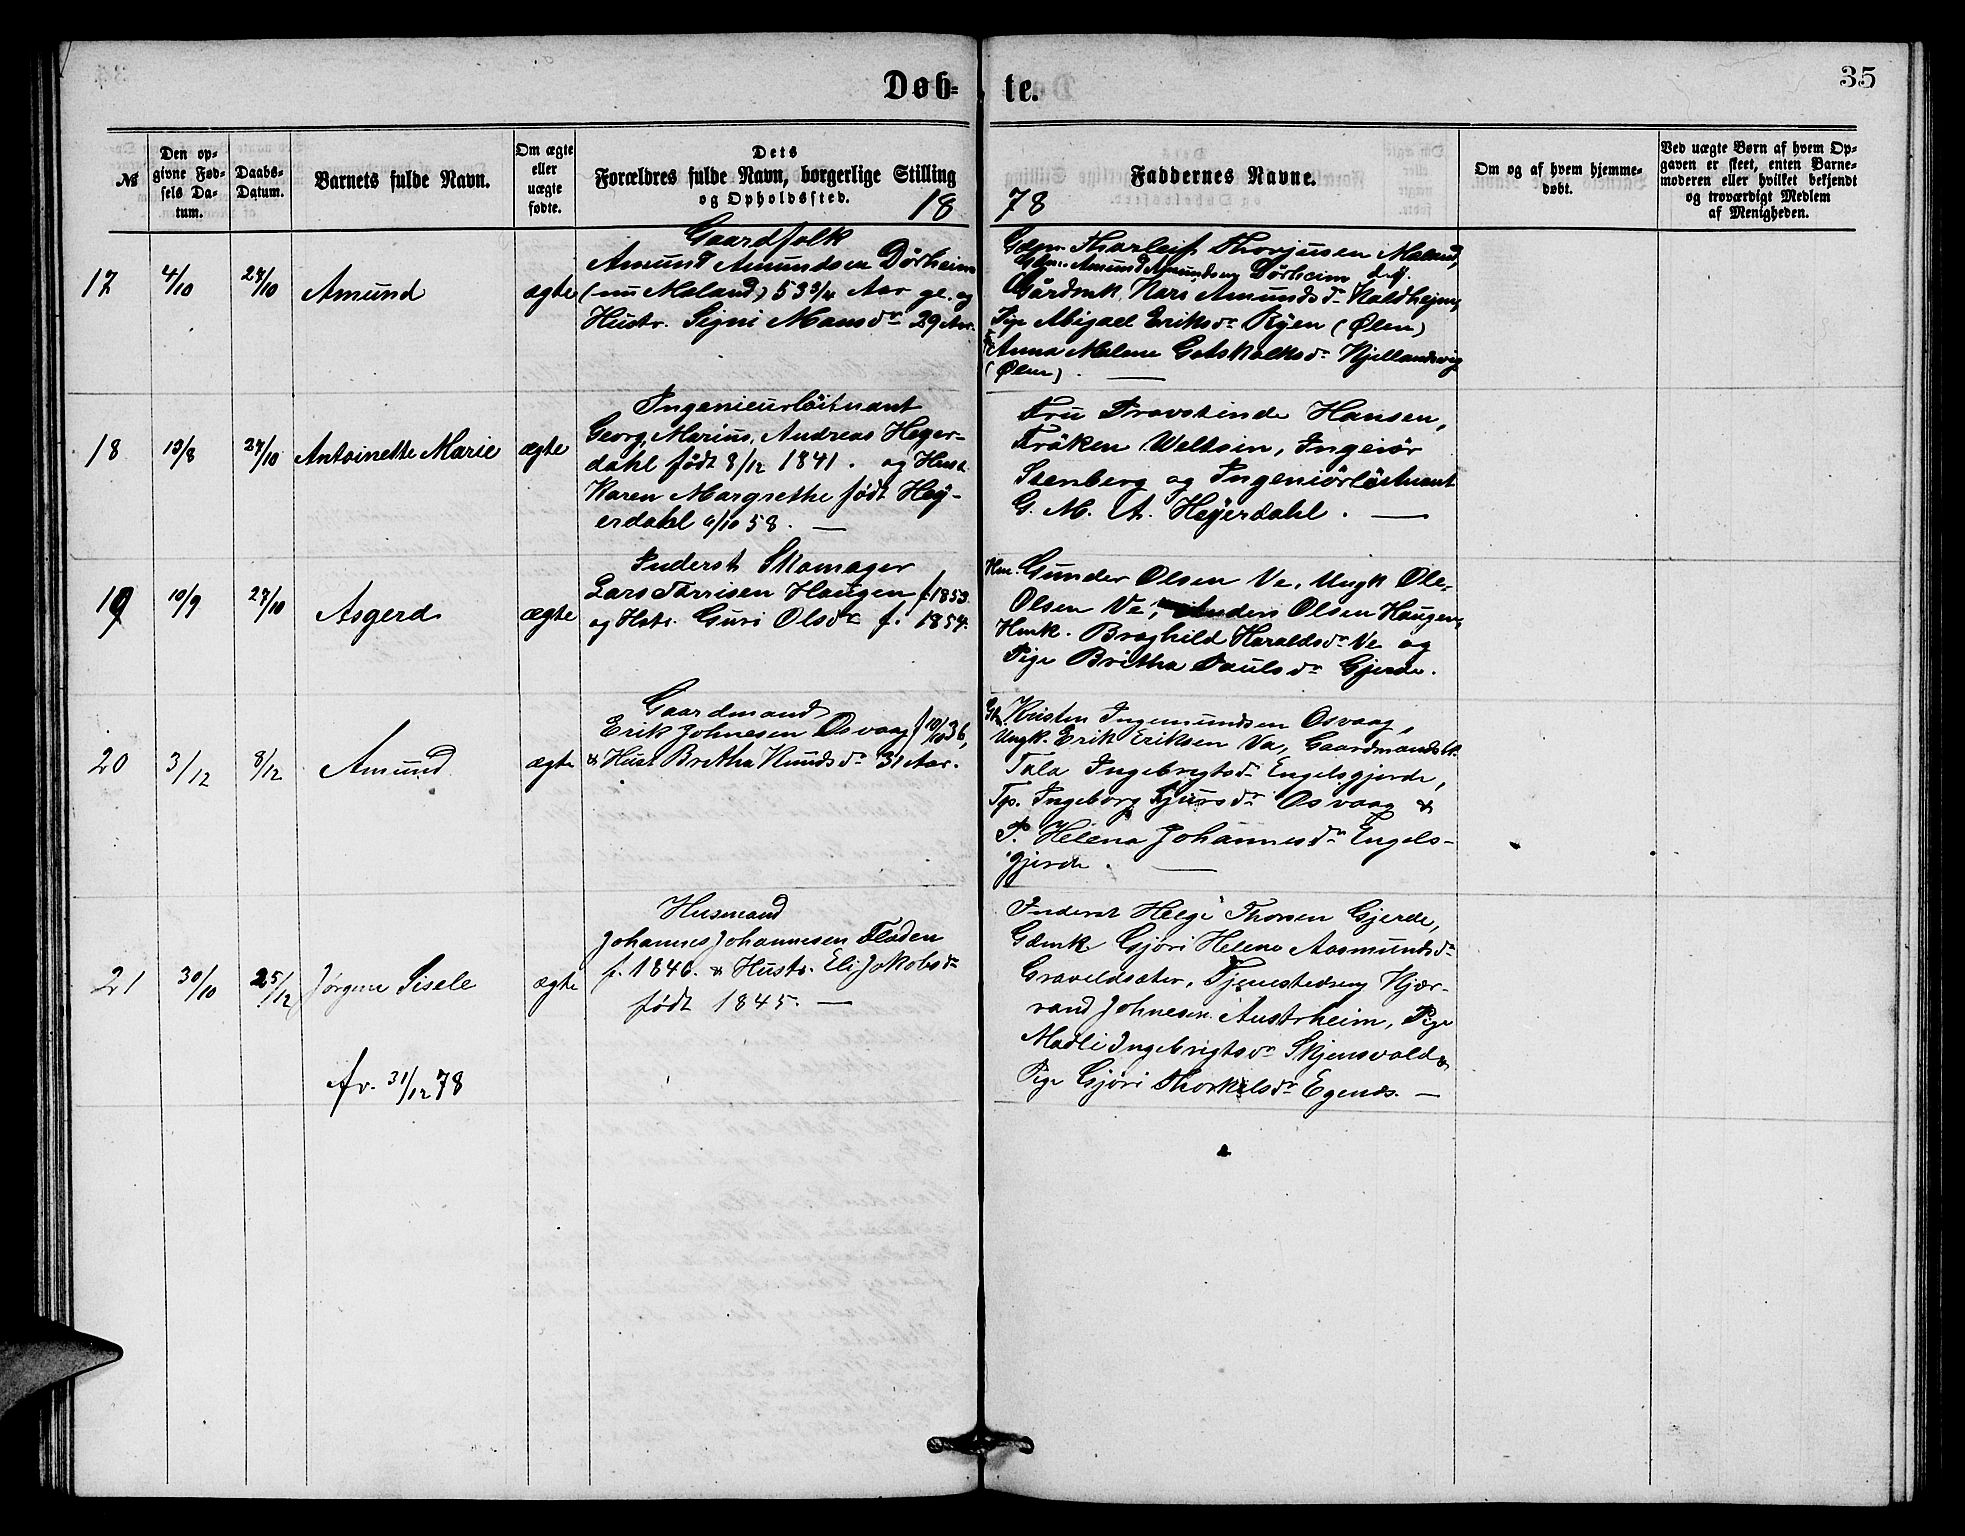 Døb-
te.
35
№
Den op-
givne Fød-
sels Da-
tum.
Daabs-
Datum.
Barnets fulde Navn.
Om ægte
eller
uægte
fødte.
Dets
Forældres fulde Navn, borgerlige Stilling
og Opholdssted.
Faddernes Navne.
Om og af hvem hjemme-
døbt.
Ved uægte Børn af hvem Op-
gaven er skeet, enten Barne-
moderen eller hvilket bekjendt
og troværdigt Medlem
af Menigheden.
18
78
17
4/10
27/10
Amund
ægte
Gaardfolk
Amund Amundsen Dörheim
(nu Maland) 53 3/4 Aar gl. og
Hustr. Signi Monsdr 29 Aar.
Gdm. Tharleif Thorjusen Maland,
Gdm. Amund Amundsen Dörheim d.y.
Gårdmk. Kari Amundsdr Kaldhejm,
Pige Abigael Eriksdr Ryen (Ølen)
Anna Malene Gotskalksdr Kjellandsvig
(Ølen).
18
13/8
27/10
Antoinette Marie
ægte
Ingenieurlöitnant
Georg Marius Andreas Heyer-
dahl født 8/12 1841. og Hust.
Karen Margrethe født Hey-
erdahl 6/10 58.
Fru Provstinde Hansen,
Fröken Waltsin, Ingeiör
Stenberg og Ingeniörlöitnant
G. M. A. Heyerdahl.
19
10/9
27/10
Asgerd
ægte
Inderst Skomager
Lars Tørrisen Haugen f. 1853
og Hstr. Guri Olsdr f. 1854.
Hm. Gunder Olsen Ve, Ungk Ole
Olsen Ve, Anders Olsen Haugen,
Hmk. Braghild Haraldsdr Ve og
Pige Britha Paulsdr Gjerde.
20
3/12
8/12
Amund
ægte
Gaardmand
Erik Johnesen Osvaag f 10/10 36,
& Hust Bretha Knudsdr 31 Aar.
Gm. Kristen Ingemundsen Osvaag,
Ungk. Erik Eriksen Va, Gaardmandsk.
Tala Ingebrigtsdr Engelsgjerde,
Tp. Ingeborg Sjursdr Osvaag &
P. Helena Johannesdr Engels-
gjerde.
21
30/10
25/12
Jørgine Sisele
ægte
Husmand
Johannes Johannesen Fladen
f. 1846. & Hustr. Eli Jakobsdr
født 1845.
Inderst Helge Thorsen Gjerde,
Gdmk. Gjöri Helene Aasmundsdr
Graveldsæter, Tjenestedreng Kjær-
rand Johnesen Austrheim, Pige
Madli Ingebrigtsdr Skjensvold &
Pige Gjöri Thorkelsdr Egenæs.
Av. 31/12 78